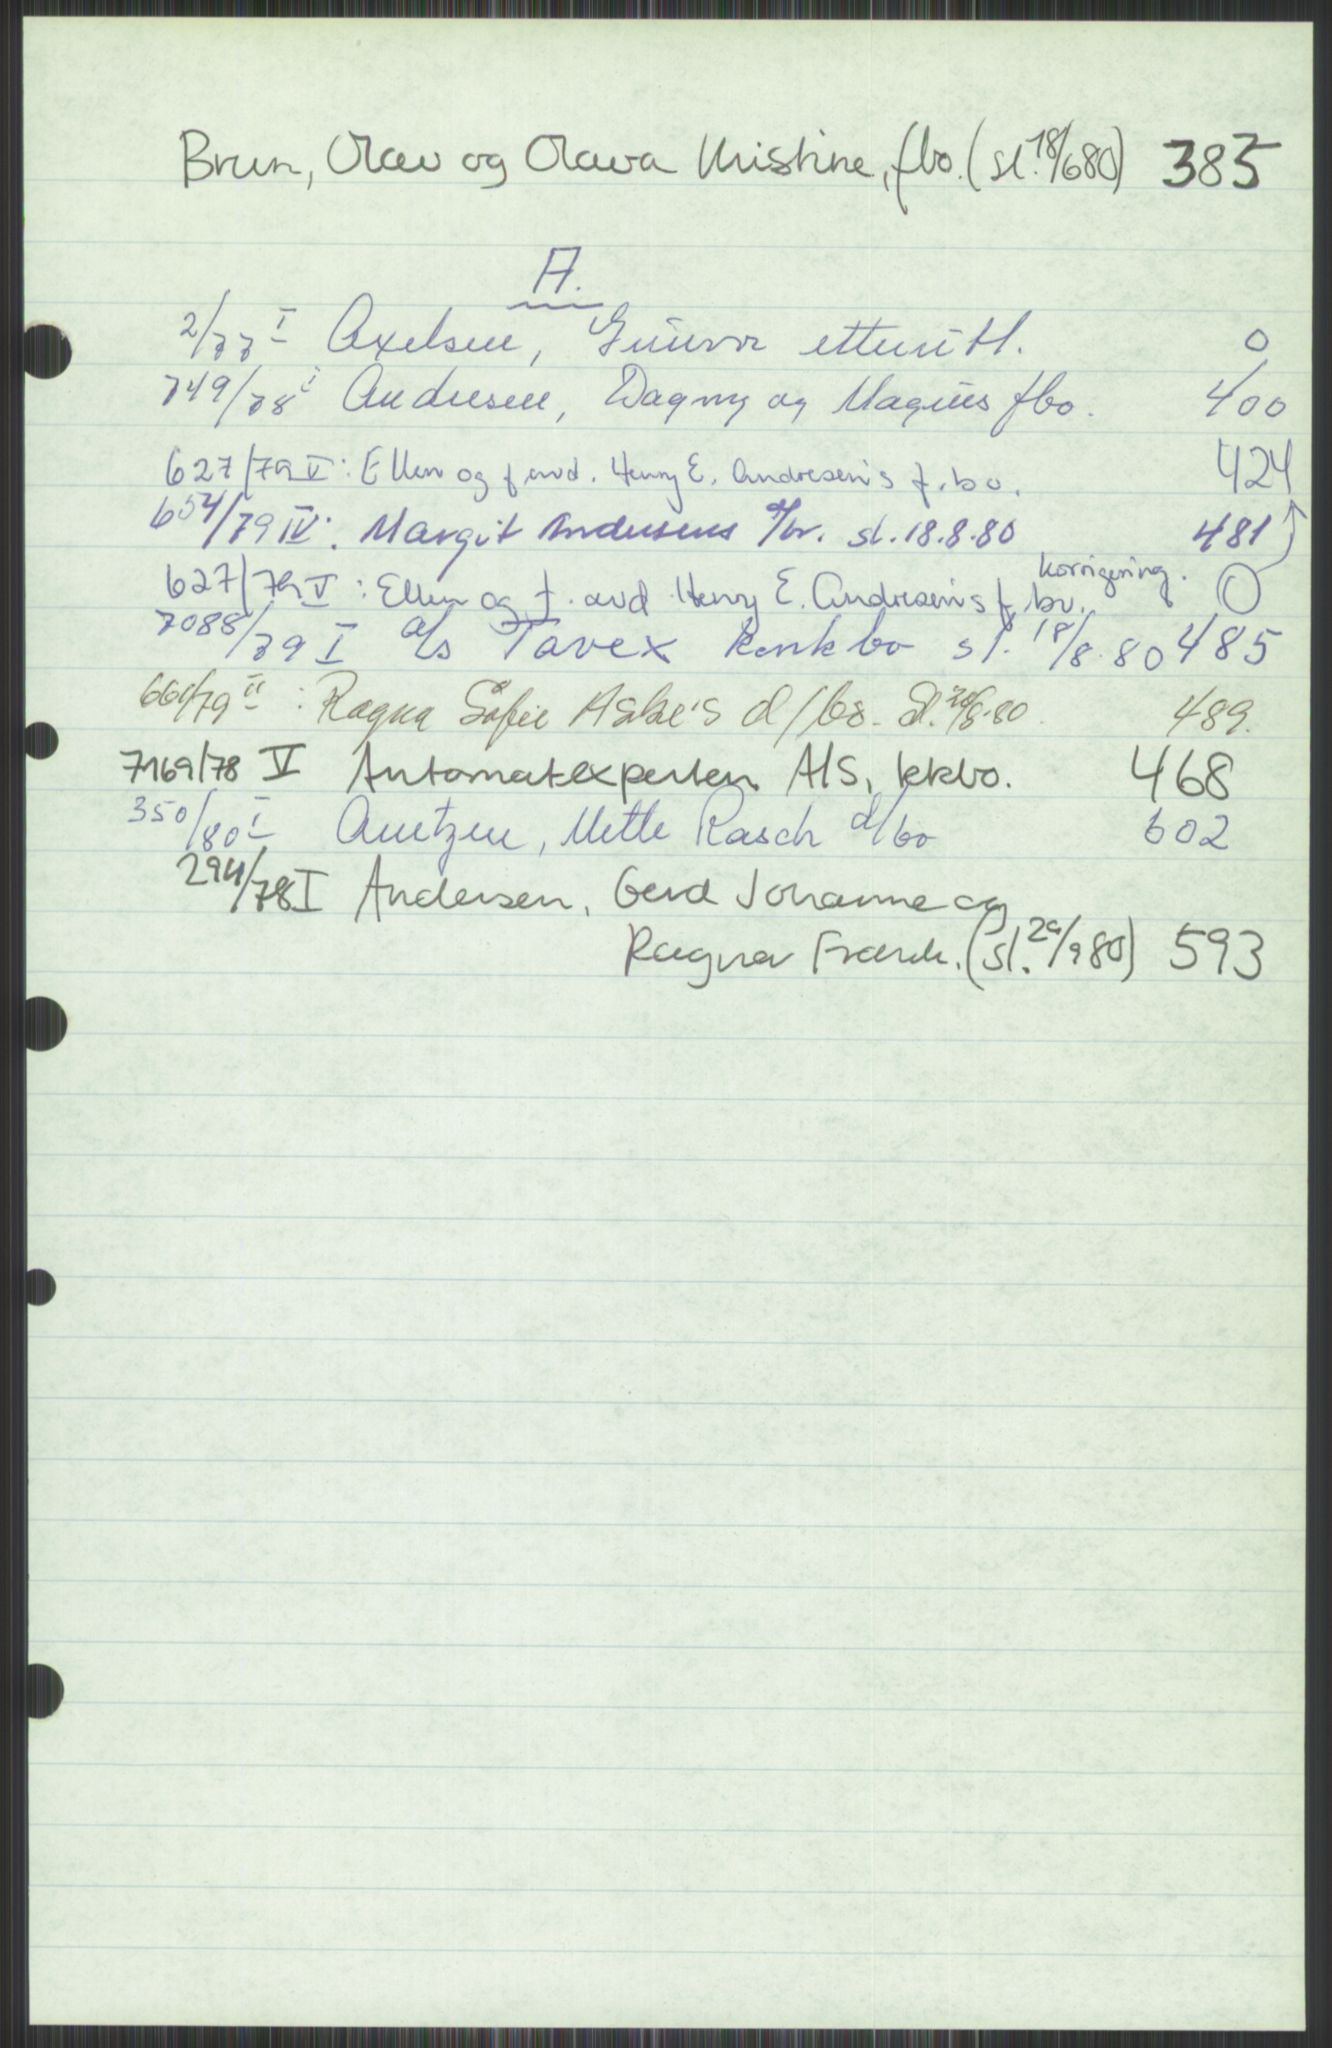 Brun, Olav og Olava Kristine, fbo. (sl. 18/6 80) 385
A.
2/77 I Axelsen, Gunvor etterutl. 0
749/78 I Andresen, Dagny og Magnus fbo. 400
627/79 V: Ellen og f. avd. Henry E. Andresen's f.bo. 424
654/79 IV: Margit Andersens d/bo. sl. 18.8.80 481
korrigering.
627/79 V: Ellen og f. avd. Henry E. Andresen's f.bo. 0
7088/79 I a/s Tavex konkbo sl. 18/8.80 485
661/79 II: Ragna Sofie Aske's d/bo. Sl. 20/8-80. 489.
7169/78 V Automatexperten A/S, kkbo. 468
350/80 I Arntzen, Mette Rasch d/bo 602
294/78 I Andersen, Gerd Johanne og
Ragnar Frank. (sl. 29/9 80) 593